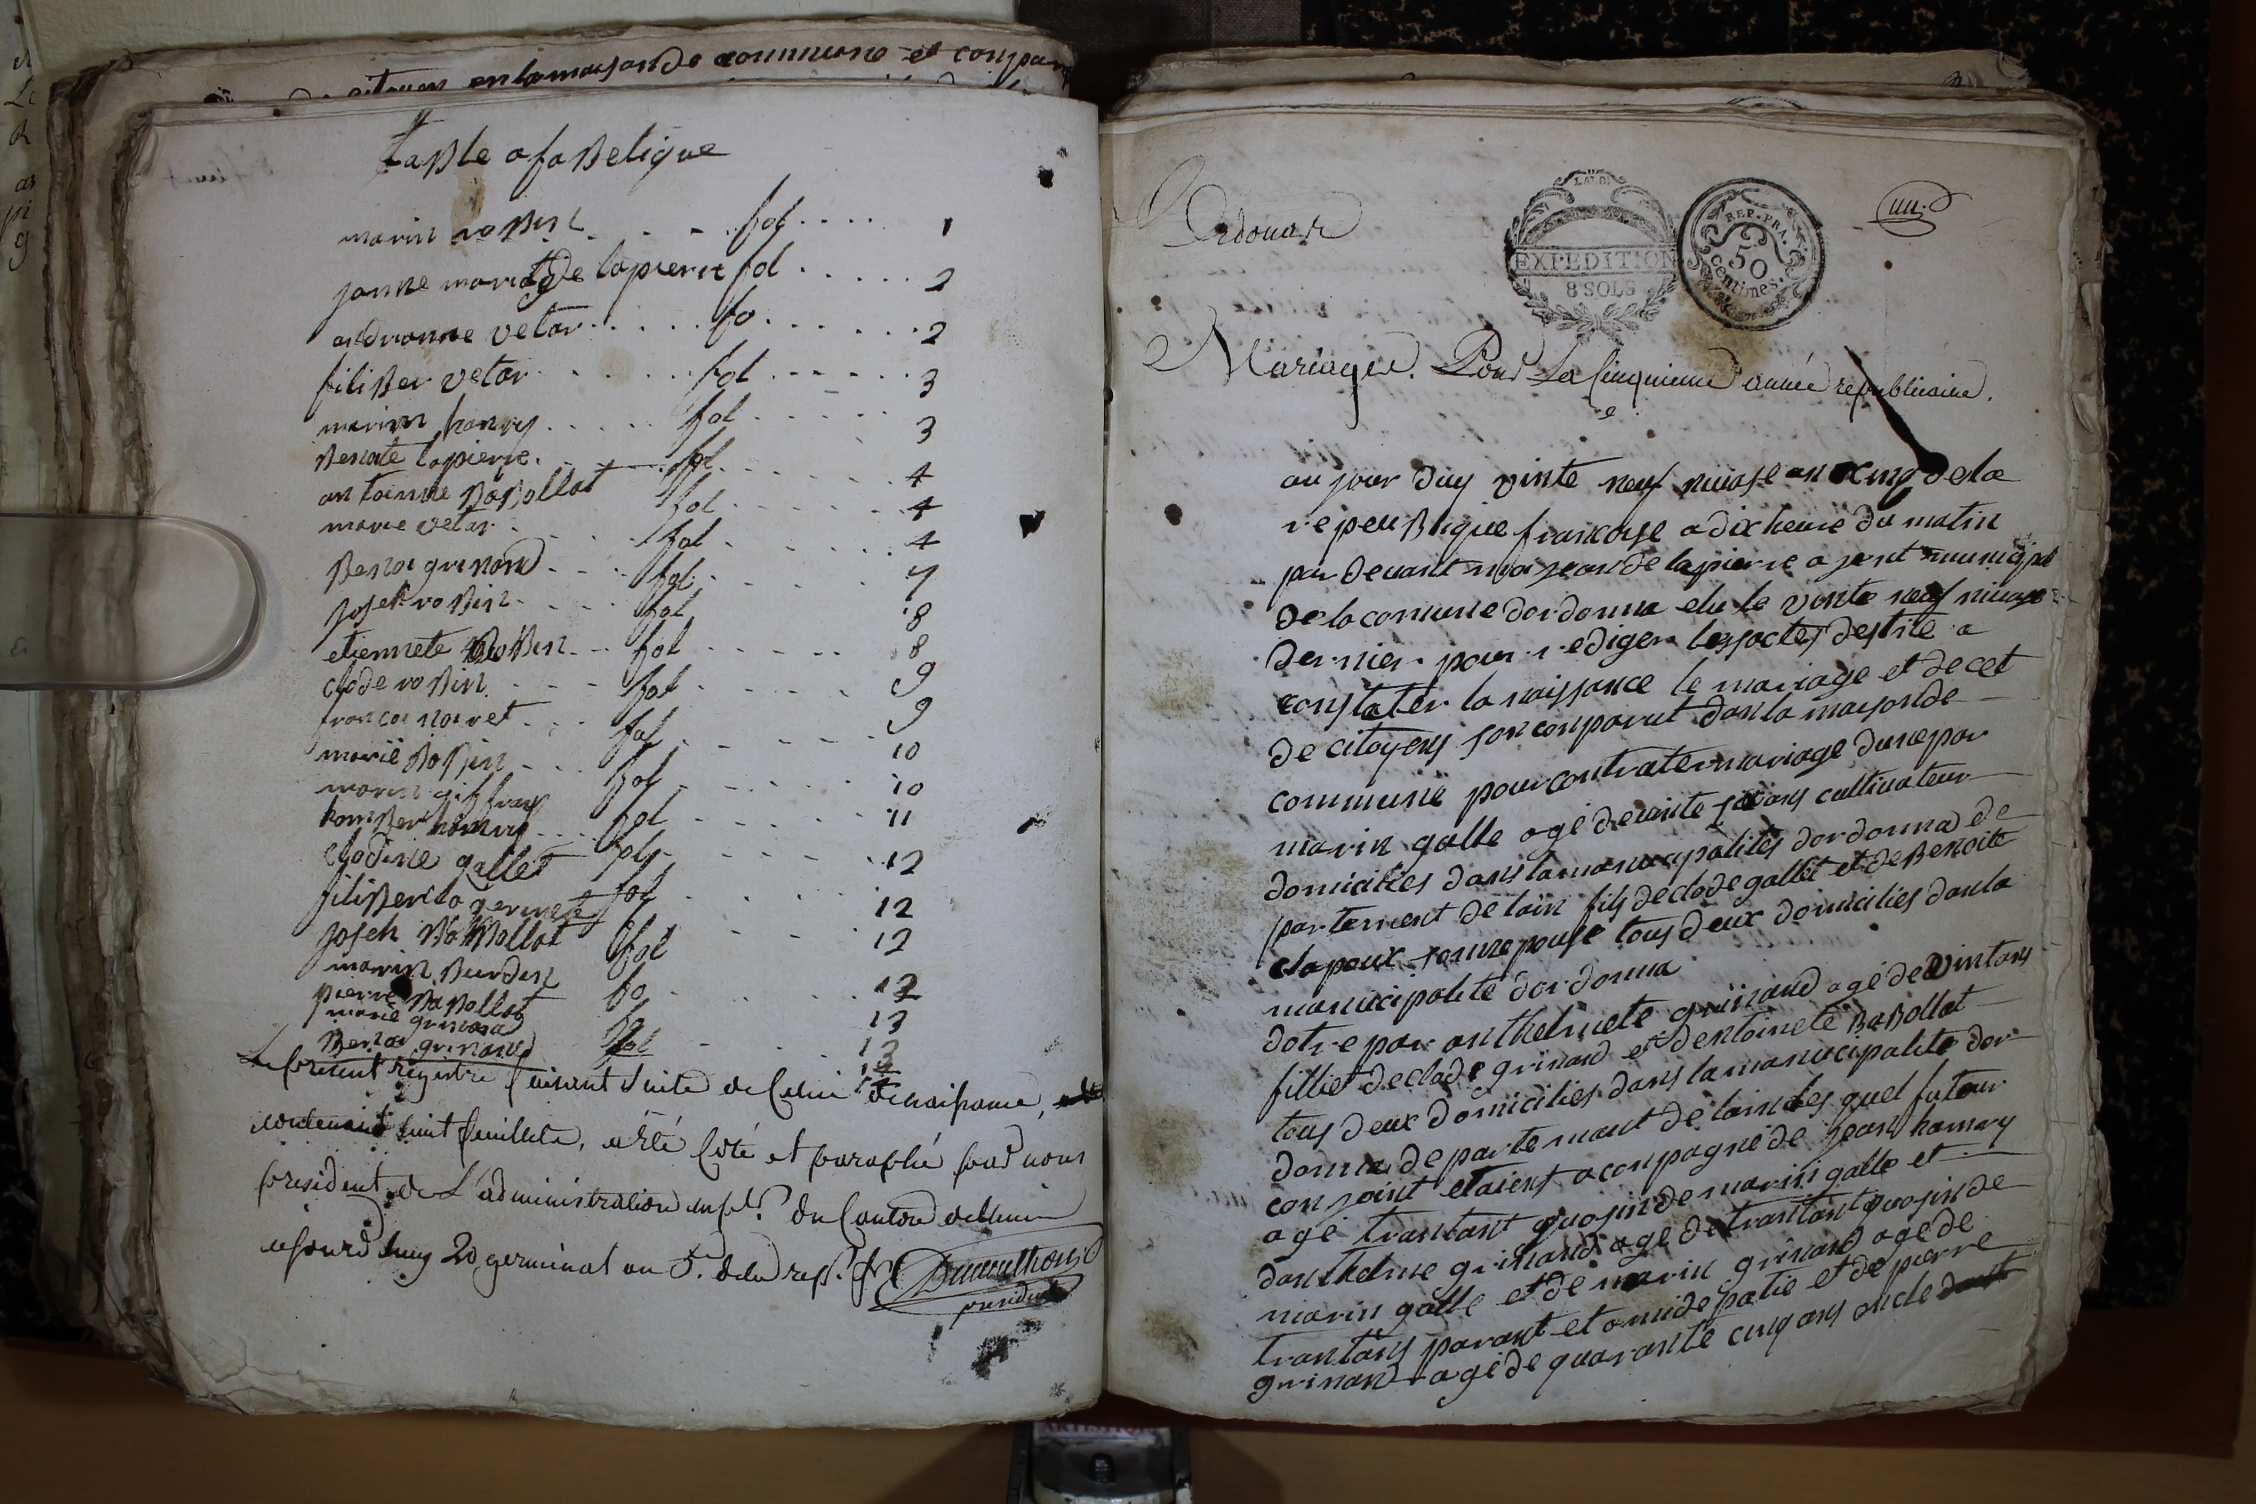 de citoyen en la maison de commune et conpar
taBle afaBetique
marin roBin fol 1
janne mariede lapierre fol 2
andrianne vetar fo 2
filiBer vetar fol 3
marin hanry fol 3
Benoite lapierre fol 4
antoinne BaBollat fol 4
marie vetar fol 4
Benoi grinand fol 7
joseh roBin fol 8
etiennete roBin fol 8
clode roBin fol 9
francoi noiret fol 9
marie Bossin fol 10
marin fol 10
hanry fol 11
clodine gallet 12
filiBer fol 12
joseh BaBollat fol 12
marin Burdin fo 12
pierre BaBollat 13
marie grinand
Benoi grinand fol
Le present registre faisant suite de celui de naissance,
contenant huit feuillets, a été coté et paraphé par nous
president de L'administration du Canton
ajourd'huy 20 germinal an 5.e de la rep.
president
Ordonna
LAIN
EXPEDITION
8 SOLS
REP. FRA.
50
centimes.
un.
Mariages. Pour La Cinquieme année républicaine.
au jour duy vinte neuf nivose an cinq de la
repeuBlique francoise a dix heure du matin
par devant moi jean de lapierre ajent municipal
de la comune dordonna elu le vinte neuf nivose
dernier pour rediger les actes destite a
constater la naissance le mariage et decet
de citoyens son conparut dans la maison de
commune pour contrater mariage dune par
marin galle age de vinte ans cultivateur
domicilies dans la manucipalites dordonna de
partement de lain fils de clode gallet et de Benoite
clapeux son nepouse tous deux domicilies dan la
manucipalité dordonna
dotre par anthelmete grinand age de vint ans
fillie de clode grinand et dentoinete BaBollat
tous deux domicilies dans la manucipalite dor
donna departemant de lain les quel futeur
conjoint etaient aconpagné de jean hanry
age trantant quosin de marin galle et
danthelme grinand age de trantant quosin de
marin galle et de marin grinand age de
trantans parant et ami de patie et de pierre
grinand age de quarante cinq ans oncle